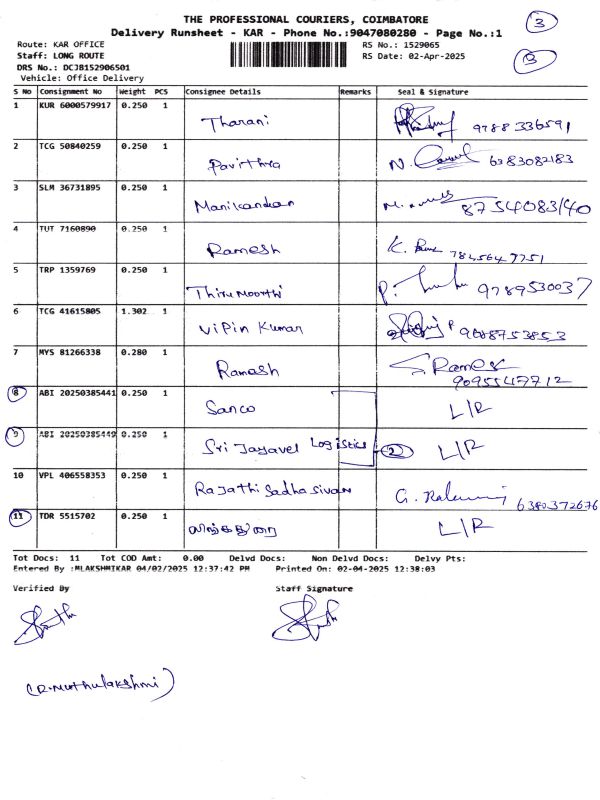 THE PROFESSIONAL COURIERS, COIMBATORE
3
Delivery Runsheet - KAR - Phone No.:9047080280 - Page No.:1
Route: KAR OFFICE RS No.: 1529065
Staff: LONG ROUTE RS Date: 02-Apr-2025
DRS No.: DCJ8152906501
Vehicle: Office Delivery
S No Consignment No Weight PCS Consignee Details Remarks Seal & Signature
1 KUR 6000579917 0.250 1
Tharani 9788336591
2 TCG 50840259 0.250 1
Pavithra 6383082183
3 SLM 36731895 0.250 1
Manikandan 8754083140
4 TUT 7160890 0.250 1
Ramesh 7845647751
5 TRP 1359769 0.250 1
Thirumoorthi 9789530037
6 TCG 41615805 1.302 1
Vipin Kumar
7 MYS 81266338 0.280 1
Ramash S. Ramesh
9095547712
8 ABI 20250385441 0.250 1
Sanco L/R
9 ABI 20250385449 0.250 1
Sri Jayavel Logistics 2 L/R
10 VPL 406558353 0.250 1
Rajathi Sadhasivam 6380372676
11 TDR 5515702 0.250 1
L/R
Tot Docs: 11 Tot COD Amt: 0.00 Delvd Docs: Non Delvd Docs: Delvy Pts:
Entered By :MLAKSHMIKAR 04/02/2025 12:37:42 PM Printed On: 02-04-2025 12:38:03
Verified By Staff Signature
(R.Muthulakshmi)